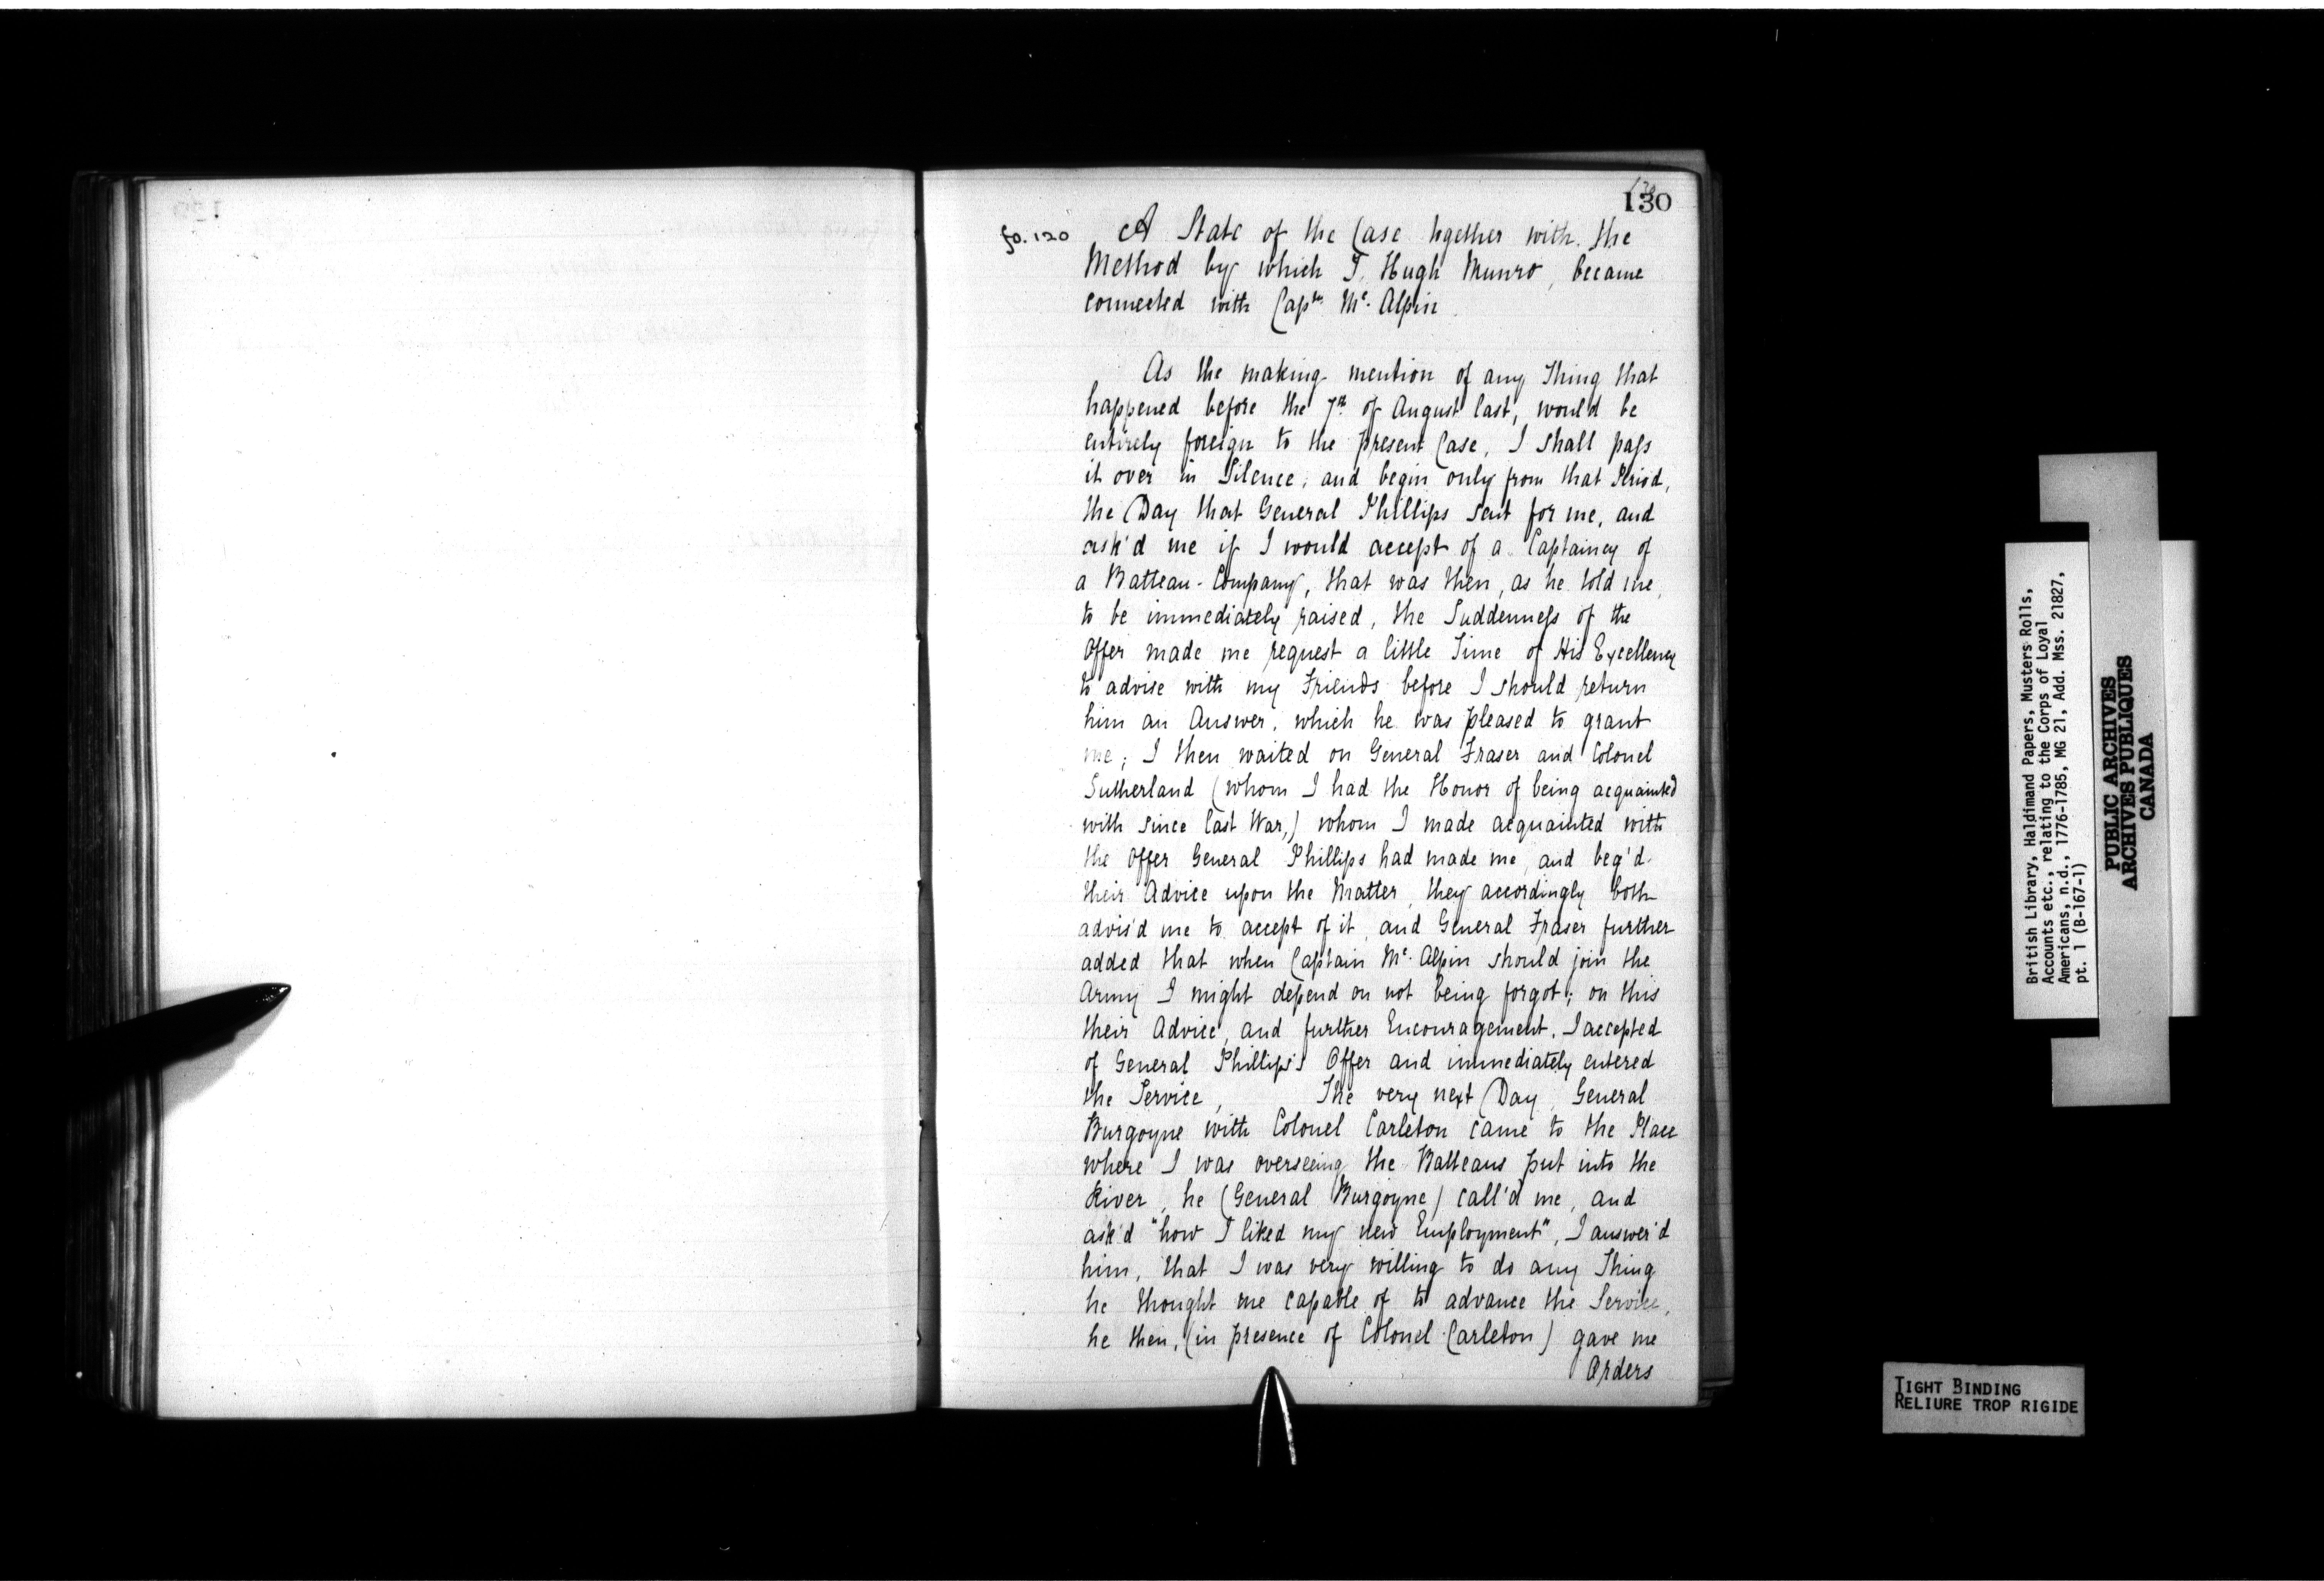 130
fo. 120
A State of the Case together with the
Method by which I, Hugh Munro, became
connected with Captn. Mc. Alpin.
As the making mention of any Thing that
happened before the 7th of August last, would be
entirely foreign to the present Case, I shall pass
it over in Silence, and begin only from that Period,
the Day that General Phillips sent for me, and
ask'd me if I would accept of a Captaincy of
a Batteau-Company, that was then, as he told me,
to be immediately raised, the Suddenness of the
Offer made me request a little Time of His Excellency
to advise with my Friends before I should return
him an Answer, which he was pleased to grant
me; I then waited on General Fraser and Colonel
Sutherland (whom I had the Honor of being acquainted
with since last War,) whom I made acquainted with
the Offer General Phillips had made me, and beg'd
their Advice upon the Matter, they accordingly both
advis'd me to accept of it, and General Fraser further
added that when Captain Mc. Alpin should join the
Army I might depend on not being forgot; on this
their Advice, and further Encouragement, I accepted
of General Phillips's Offer and immediately entered
the Service, The very next Day, General
Burgoyne with Colonel Carleton came to the Place
where I was overseeing the Batteaus put into the
River, he (General Burgoyne) call'd me, and
ask'd "how I liked my new Employment", I answer'd
him, that I was very willing to do any Thing
he thought me capable of to advance the Service,
he then, (in presence of Colonel Carleton) gave me
Orders
British Library, Haldimand Papers, Musters Rolls,
Accounts etc., relating to the Corps of Loyal
Americans, n.d., 1776-1785, MG 21, Add. Mss. 21827,
pt. 1 (B-167-1)
PUBLIC ARCHIVES
ARCHIVES PUBLIQUES
CANADA
TIGHT BINDING
RELIURE TROP RIGIDE